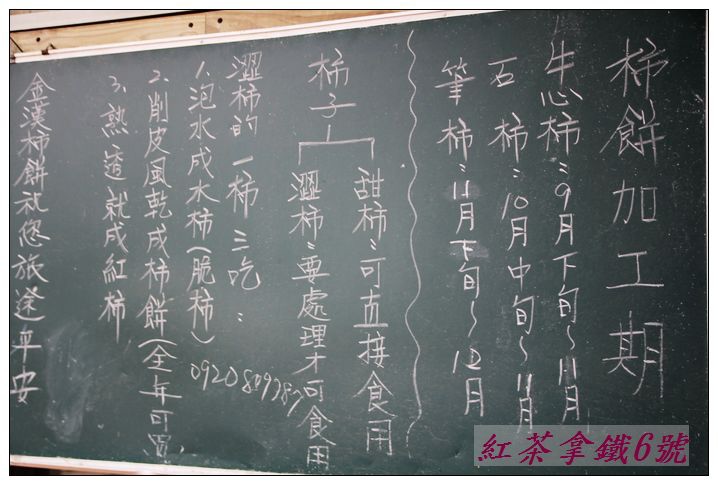 柿餅加工期
牛心柿：9月下旬~11月
石柿：10月中旬~11月
筆柿：11月下旬~12月
柿子
甜柿：可直接食用
澀柿：要處理才可食用
澀柿的一柿三吃：
1.泡水成水柿(脆柿)
0920809787
2.削皮風乾成柿餅(全年可買
3.熟透就成紅柿
金漢柿餅祝您旅途平安
紅茶拿鐵6號